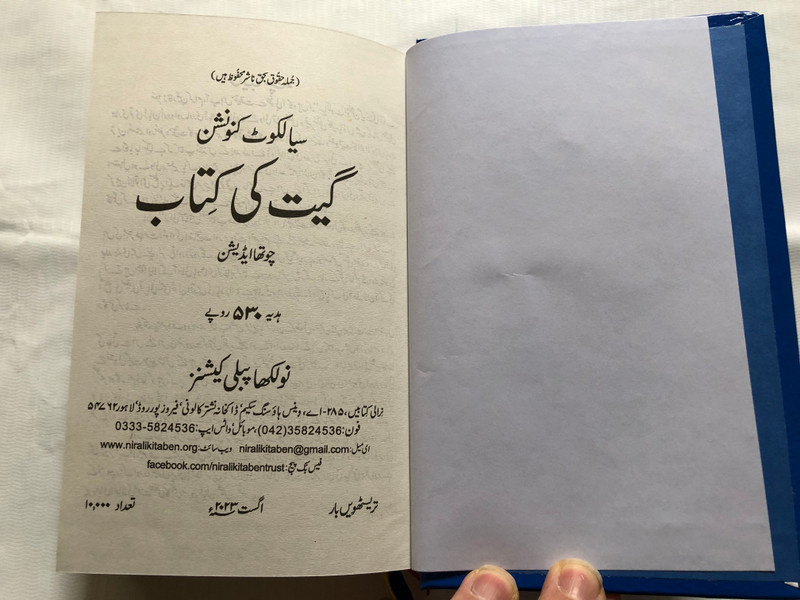 (جُملہ حقُوق بحق ناشر محفُوظ ہیں)
سیالکوٹ کنونشن
گیت کی کِتاب
چوتھا ایڈیشن
ہدیہ ۵۳۰ روپے
نولکھا پبلی کیشنز
نرالی کتابیں، ۲۸۵-اے، وینس ہاؤسنگ سکیم، ڈاکخانہ نشتر کالونی، فیروز پور روڈ، لاہور ۵۴۷۶۲
فون:35824536(042)، موبائل/واٹس ایپ:0333-5824536
ای میل:niralikitaben@gmail.com ویب سائٹ:www.niralikitaben.org
فیس بک پیج:facebook.com/niralikitabentrust
تریسٹھویں بار اگست ۲۰۲۳ء تعداد ۱۰,۰۰۰